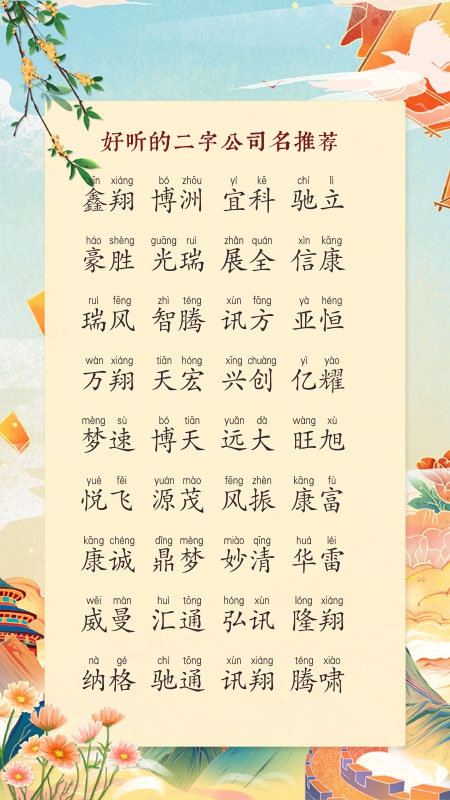 好听的二字公司名推荐
xīn xiáng bó zhōu yí kē chí lì
鑫翔 博洲 宜科 驰立
háo shèng guāng ruì zhǎn quán xìn kāng
豪胜 光瑞 展全 信康
ruì fēng zhì téng xùn fāng yà héng
瑞风 智腾 讯方 亚恒
wàn xiáng tiān hóng xīng chuàng yì yào
万翔 天宏 兴创 亿耀
mèng sù bó tiān yuǎn dà wàng xù
梦速 博天 远大 旺旭
yuè fēi yuán mào fēng zhèn kāng fù
悦飞 源茂 风振 康富
kāng chéng dǐng mèng miào qīng huá léi
康诚 鼎梦 妙清 华雷
wēi màn huì tōng hóng xùn lóng xiáng
威曼 汇通 弘讯 隆翔
nà gé chí tōng xùn xiáng téng xiào
纳格 驰通 讯翔 腾啸